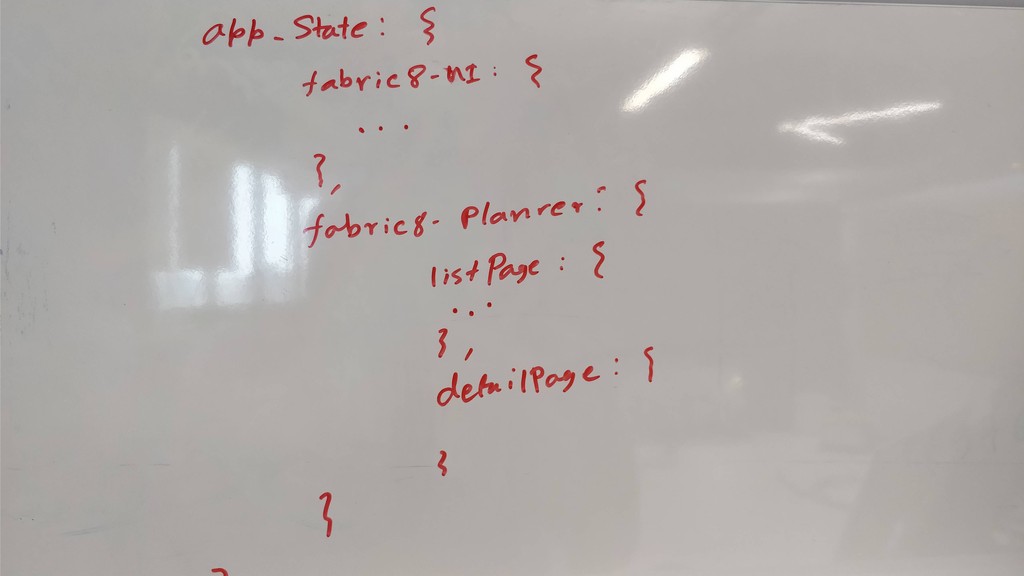 app_State: {
fabric8-UI: {
...
},
fabric8-Planner: {
listPage: {
...
},
detailPage: {
}
}
}